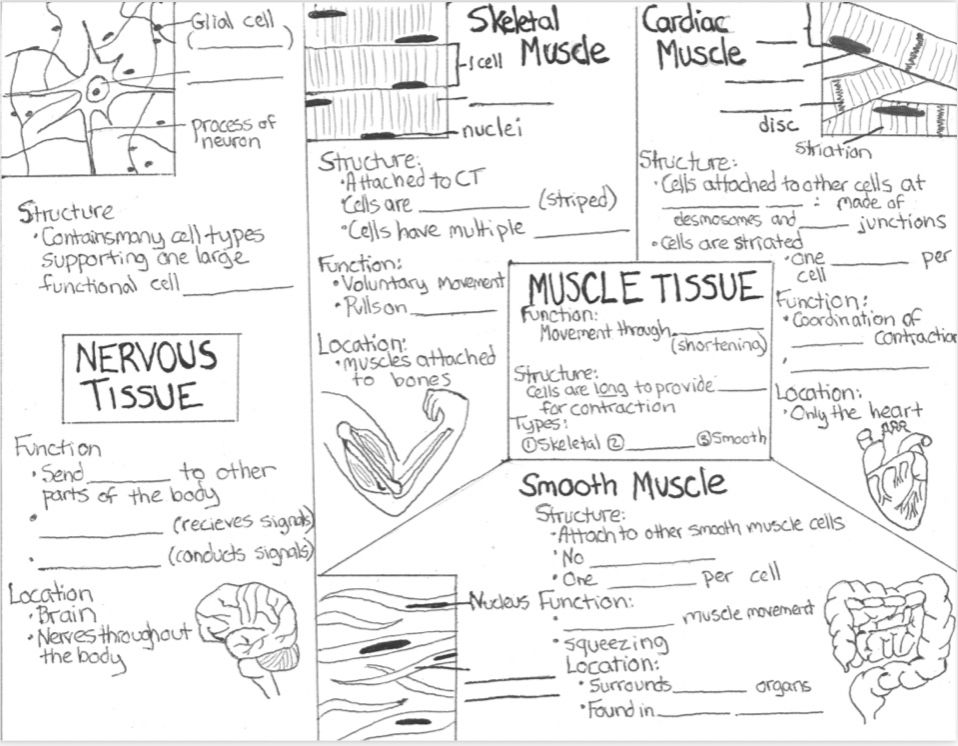 Glial cell
(__________)
__________
process of
neuron
Structure
• Contains many cell types
supporting one large
functional cell __________
NERVOUS
TISSUE
Function
• Send ________ to other
parts of the body
• __________ (recieves signals)
• __________ (conducts signals)
Location
• Brain
• Nerves throughout
the body
Skeletal
Muscle
1 cell
__________
nuclei
Structure:
• Attached to CT
• Cells are __________ (striped)
• Cells have multiple __________
Function:
• Voluntary movement
• Pulls on __________
Location:
• muscles attached
to bones
Cardiac
Muscle
__________
__________
__________
disc
striation
Structure:
• Cells attached to other cells at
__________ ____ : made of
desmosomes and _____ junctions
• Cells are striated
• one ________ per
cell
Function:
• Coordination of
________ contraction
• __________
Location:
• Only the heart
MUSCLE TISSUE
Function:
Movement through __________
(shortening)
Structure:
Cells are long to provide ______
for contraction
Types:
① Skeletal ② ________ ③ Smooth
Smooth Muscle
Structure:
• Attach to other smooth muscle cells
• No __________
• One __________ per cell
Nucleus
__________
__________
Function:
• __________ muscle movement
• squeezing
Location:
• Surrounds ________ organs
• Found in ________ ________